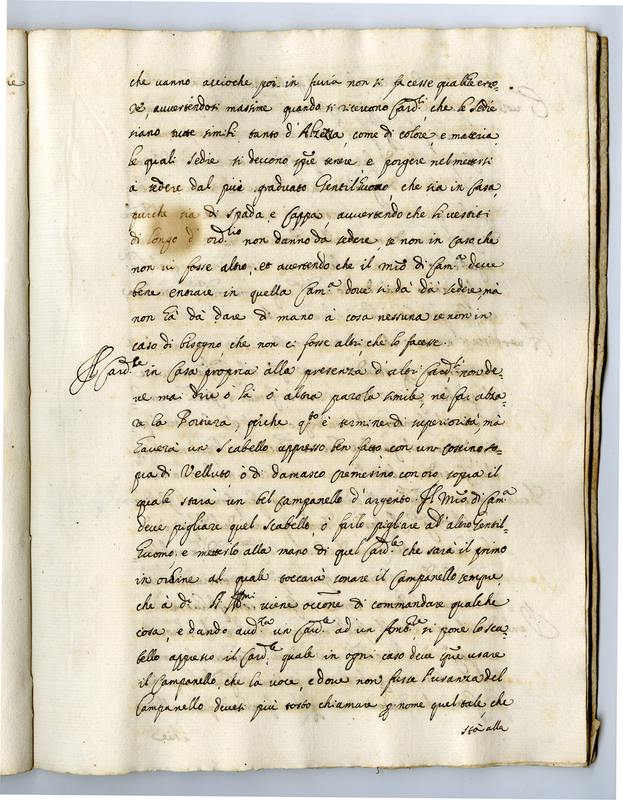 che vanno accioche poi in furia non si facesse qualche erro-
re, avvertendosi massime quando si ricevono Card.li che le sedie
siano tutte simili tanto d'Altezza, come di colore, e materia
le quali sedie si devono tenere, e porgere nel mettersi
à sedere dal più graduato Gentilhuomo, che sia in Casa,
purche sia di Spada, e Cappa, avvertendo che li vestiti
di longo d' ord.rio non danno da sedere, se non in caso che
non vi fosse altro, et avertendo che il Mro di Cam.a deve
bene entrare in quella Cam.a dove si dà da sedere, mà
non hà da dare di mano à cosa nessuna se non in
caso di bisogno che non ci fosse altri che lo facesse.
Il Card.le in Casa propria alla presenza d'altri Card.li non de-
ve mai dire ò là ò altra parola simile, ne far alza-
re la Portiera, perche q.to è termine di superiorità, mà
haverà un Scabello appresso ben fatto con un coscino so-
pra di Velluto, ò di damasco cremesino con oro sopra il
quale starà un bel Campanello d'argento. Il Mro di Cam.a
deve pigliare quel Scabello, ò farlo pigliare ad altro Gentil-
huomo e metterlo alla mano di quel Card.le che sarà il primo
in ordine al quale toccarà sonare il Campanello sempre
che à di viene occ.ne di commandare qualche
cosa, e dando aud.za un Card.le ad un Amb.re si pone lo sca-
bello appresso il Card.le quale in ogni caso deve usare
il Campanello, che la voce, e dove non fusse l'usanza del
Campanello devesi più tosto chiamare p nome quel tale, che
stà alla